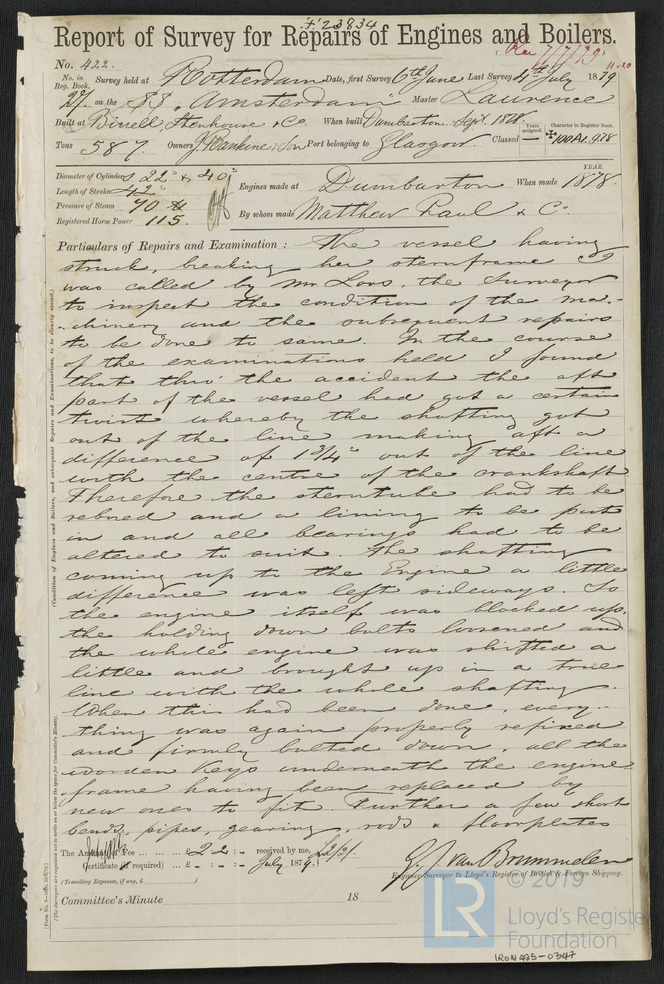 '4' 23834
Report of Survey for Repairs of Engines and Boilers.
Rec 7/7/79
No. 422.
11.20
No. in Reg. Book. Survey held at Rotterdam Date, first Survey 6th June Last Survey 4th July 1879
27 on the SS "Amsterdam" Master Laurence
Built at Birrell, Stenhouse & Co When built Dumbarton Sept. 1878 Years assigned. Character in Register Book.
Tons 587 Owners J. Rankine & Son Port belonging to Glasgow Classed 100A1. 9.78
Diameter of Cylinders 22" & 40" YEAR.
Length of Stroke 42" Engines made at Dumbarton When made 1878.
Pressure of Steam 70 lb
Registered Horse Power 115. By whom made Matthew Paul & Co.
Particulars of Repairs and Examination : The vessel having
struck, breaking her sternframe I
was called by Mr. Loos, the Surveyor
to inspect the condition of the ma-
-chinery and the subsequent repairs
to be done to same. In the course
of the examinations held I found
that thro' the accident the aft
part of the vessel had got a certain
twist whereby the shafting got
out of the line making aft a
difference of 1 3/4" out of the line
with the centre of the crankshaft
Therefore the sterntube had to be
rebored and a lining to be put
in and all bearings had to be
altered to suit. The shafting
coming up to the Engine a little
difference was left sideways. So
the engine itself was blocked up.
the holding down bolts loosened and
the whole engine was shifted a
little and brought up in a true
line with the whole shafting.
When this had been done, every-
thing was again properly refixed
and firmly bolted down, all the
wooden keys underneath the engine
frame having been replaced by
new ones to fit. Further a few short
bends, pipes, gearing, rods & floorplates
The Amount of Fee ... ... £ 2 - 2 : - : - received by me,
Certificate (if required) ... £ - : - : - July 1879
(Travelling Expenses, if any, £ )
G. J. van Brummelen
Engineer Surveyor to Lloyd's Register of British & Foreign Shipping.
Committee's Minute 18
(Condition of Engines and Boilers, and subsequent Repairs and Examinations, to be clearly stated.)
(The Surveyors are requested not to write on or below the space for Committee's Minute).
© 2019
LR
Lloyd's Register
Foundation
IRON425-0347